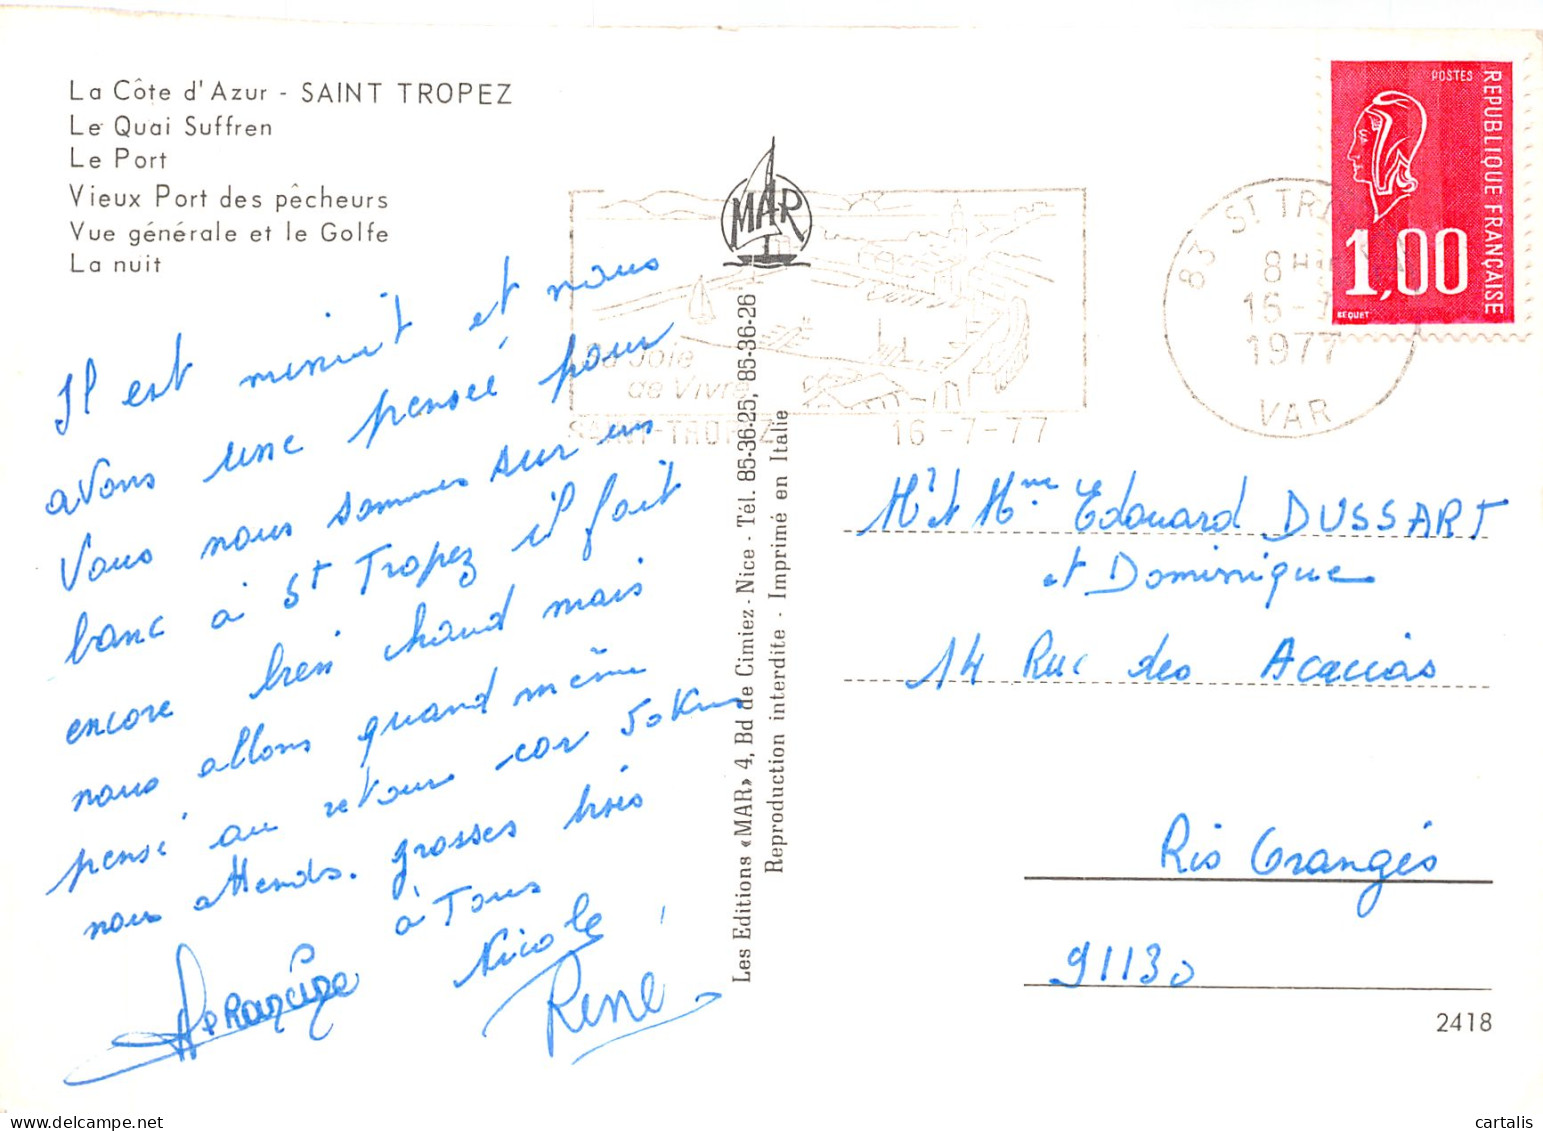 La Côte d'Azur - SAINT TROPEZ
Le Quai Suffren
Le Port
Vieux Port des pêcheurs
Vue générale et le Golfe
La nuit
Il est minuit et nous
avons une pensée pour
Vous nous sommes sur un
banc à St Tropez il fait
encore bien chaud mais
nous allons quand même
pensé au retour car 50 Kms
nous attends. grosses bises
à Tous
Nicole
René
MAR
Les Editions «MAR» 4, Bd de Cimiez - Nice - Tél. 85-36-25, 85-36-26
Reproduction interdite - Imprimé en Italie
La Joie
de Vivre
SAINT-TROPEZ 16-7-77
83 ST TR
8H
16-7
1977
VAR
POSTES
REPUBLIQUE FRANÇAISE
1,00
BEQUET
Mr et Mme Edouard DUSSART
et Dominique
14 Rue des Acacias
Ris Orangis
91130
2418
cartalis